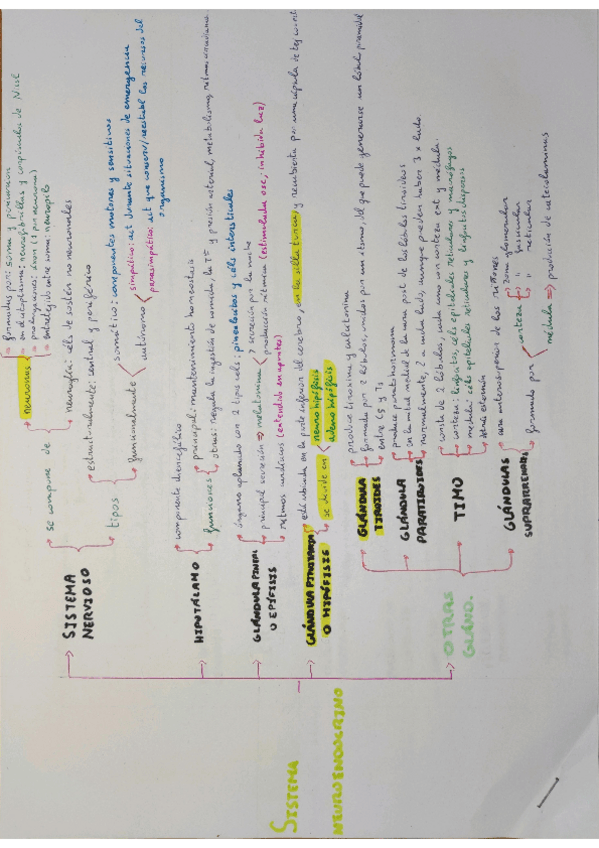 SISTEMA
NEUROENDOCRINO
SISTEMA
NERVIOSO
se compone de
neuronas
formadas por: soma y
en el citoplasma: neurofibrillas y corpúsculos de Nissl
prolongaciones: áxon (1 por neurona)
entretejido entre somas: neuropilo
neuroglía: céls de sostén no neuronales
tipos
estructuralmente: central y periférico
funcionalmente
somático: componentes motores y sensitivos
autónomo
simpático: act durante situaciones de emergencia
parasimpático: act que conserv/reestabl los recursos del
organismo
HIPOTÁLAMO
componente diencefálico
funciones
principal: mantenimiento homeostasis
otras: regula la ingestión de comida, la Tª y presión arterial, metabolismo, ritmo circadiano
GLÁNDULA PINEAL
O EPÍFISIS
órgano aplanado con 2 tipos cels: pinealocitos y céls intersticiales
principal secreción => melatonina
secreción por la noche
producción rítmica (estimulada osc; inhibida luz)
ritmos cardíacos (entendido en apuntes)
GLÁNDULA PITUITARIA
O HIPÓFISIS
está ubicada en la parte inferior del cerebro, en la silla turca, y recubierta por una cápsula de tej conect
se divide en
neurohipófisis
adenohipófisis
OTRAS
GLÁND.
GLÁNDULA
TIROIDES
produce tiroxina y calcitonina
formada por 2 lóbulos, unidos por un itsmo, del que puede generarse un lóbulo piramidal
entre C5 y T1
GLÁNDULA
PARATIROIDES
produce parathormona
en la mitad medial de la cara post de los lóbs tiroideos
normalmente, 2 a cada lado, aunque pueden haber 3 x lado
TIMO
consta de 2 lóbulos, cada uno con corteza ext y médula.
corteza: linfocitos, céls epiteliales reticulares y macrófagos
médula: céls epiteliales reticulares y linfocitos dispersos
detrás esternón
GLÁNDULAS
SUPRARRENALES
cara anterosuperior de los riñones
formada por
corteza
zona glomerular
" fascicular
" reticular
médula => producción de catecolaminas